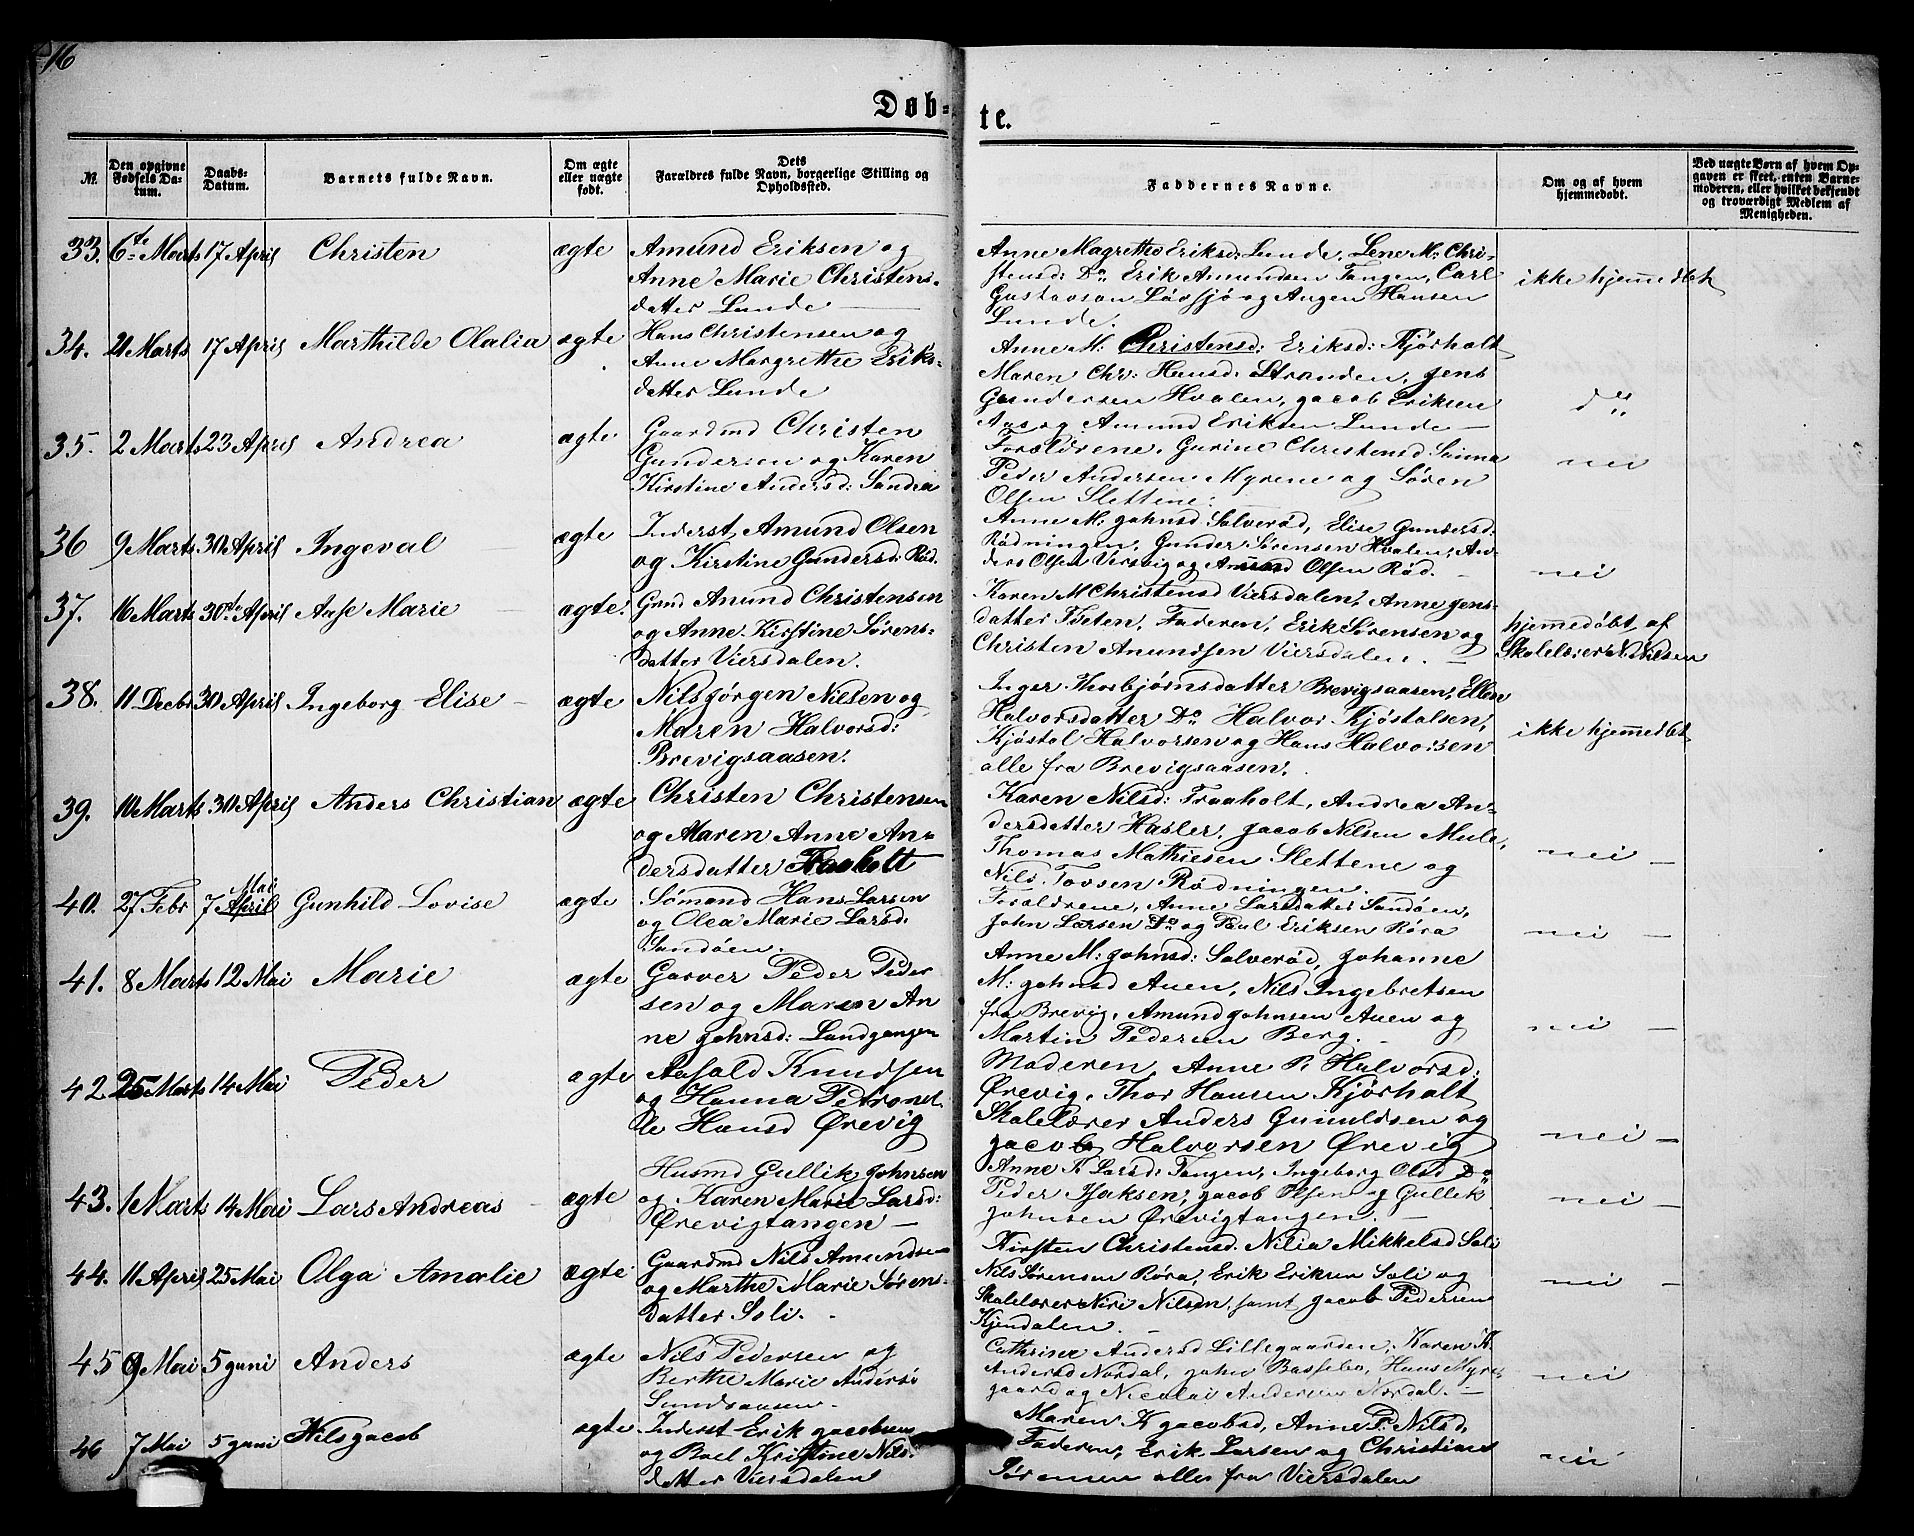 16
Døb-
te.
№.
Den opgivne Fødsels Datum.
Daabs-Datum.
Barnets fulde Navn.
Om ægte eller uægte født.
Dets Forældres fulde Navn, borgerlige Stilling og Opholdssted.
Faddernes Navne.
Om og af hvem hjemmedøbt.
Ved uægte Børn af hvem Opgaven er skeet, enten Barnemoderen, eller hvilket bekjendt og troværdigt Medlem af Menigheden.
33. 6te Marts 17 April Christen ægte
Amund Eriksen og
Anne Marie Christens-
datter Lunde
Anne Magrethe Eriksd: Lunde, Lene M: Chri-
stensd: Do Erik Amundsen Tangen, Carl
Gustavson Løvsjø og Augen Hansen
Lunde.
ikke hjemmedbt
34. 21 Marts 17 April Marthilde Olalia ægte
Hans Christensen og
Anne Margrethe Eriks-
datter Lunde
Anne M: Christensd: Eriksd: Kjørholt
Maren Chr: Hansd: Stranden, Jens
Gundersen Hvalen, Jacob Eriksen
Aas og Amund Eriksen Lunde
do
35. 2 Marts 23 April Andrea ægte
Gaardmd Christen
Gundersen og Karen
Kirstine Andersd: Sandøa
Forældrene, Gurine Christensd
Peder Andersen Myrene og Søren
Olsen Slettene.
nei
36 9 Marts 30 April Ingeval ægte
Inderst, Amund Olsen
og Kirstine Gundersd: Rød.
Anne M: Johnsd: Salverød, Elise Gundersd:
Rødningen, Gunder Sørensen Hvalen, An-
ders Olsen Versvig og Amund Olsen Rød.
nei
37. 16 Marts 30te April Aase Marie ægte.
Grmd Anund Christensen
og Anne Kirstine Sørens-
datter Viersdalen.
Karen M Christensd Viersdalen, Anne Jens-
datter Tveten, Faderen, Erik Sørensen og
Christen Anundsen Viersdalen.
hjemmedøbt af
Skolelærer N. Nilsen
38. 11 Decbr 30 April Ingeborg Elise ægte
Nils Jørgen Nilsen og
Maren Halvorsd:
Brevigsaasen.
Inger Thorbjørnsdatter Brevigsaasen, Ellen
Halvorsdatter Do Halvor Kjøstolsen,
Kjøstol Halvorsen og Hans Halvorsen
alle fra Brevigsaasen.
ikke hjemmedbt
39. 10 Marts 30 April Anders Christian ægte
Christen Christensen
og Maren Anne An-
dersdatter Traaholt
Karen Nilsd: Traaholt, Andrea An-
dersdatter Hasler, Jacob Nilsen Mule,
Thomas Mathiesen Slettene og
Nils Tovsen Rødningen.
nei
40. 27 Febr 7 April Mai Gunhild Lovise ægte
Sømand Hans Larsen
og Olea Marie Larsd:
Sandøen.
Forældrene, Anne Larsdatter Sandøen,
John Larsen Do og Paul Eriksen Røra
nei
41. 8 Marts 12 Mai Marie ægte
Garver Peder Peder
sen og Maren An
ne Johnsd: Landgangen
Anne M: Johnsd: Salverød, Johanne
M: Johnsd Auen, Nils Ingebretsen
fra Brevig, Amund Johnsen Auen og
Martin Pedersen Berg.
nei
42 25 Marts 14 Mai Peder ægte
Aasold Knudsen
og Hanna Petronel
le Hansd Ørevig
Moderen, Anne P. Halvorsd:
Ørevig, Thor Hansen Kjørholt
Skolelærer Anders Gunuldsen og
Jacob Halvorsen Ørevig
nei
43. 1 Marts 14 Mai Lars Andreas ægte
Husmd Gullik Johnsen
og Karen Marie Larsd:
Ørevigtangen
Anne K. Larsd: Tangen, Ingeborg Olsd Do
Peder Isaksen, Jacob Olsen og Gullik
Johnsen Ørevigtangen.
nei
44. 11 April 25 Mai Olga Amalie ægte
Gaardmd Nils Amundsen
og Marthe Marie Sørens-
datter Soli.
Kirsten Christensd. Nilia Mikkelsd Soli
Nils Sørensen Røra, Erik Eriksen Soli og
Skolelærer Niri Nilsen, samt Jacob Pedersen
Kjendalen.
nei
45 9 Mai 5 Juni Anders ægte
Nils Pedersen og
Berthe Marie Andersd
Sundsaasen
Cathrine Andersd Lillegaarden, Karen K.
Andersd Nordal, John Bassebo, Hans Myre
gaard og Nicolai Andersen Nordal.
nei
46 7 Mai 5 Juni Nils Jacob ægte
Inderst Erik Jacobsen
og Boel Kristine Nils-
datter Viersdalen
Maren K Jacobsd, Anne P. Nilsd,
Faderen, Erik Larsen og Christine
Sørensen alle fra Viersdalen
nei